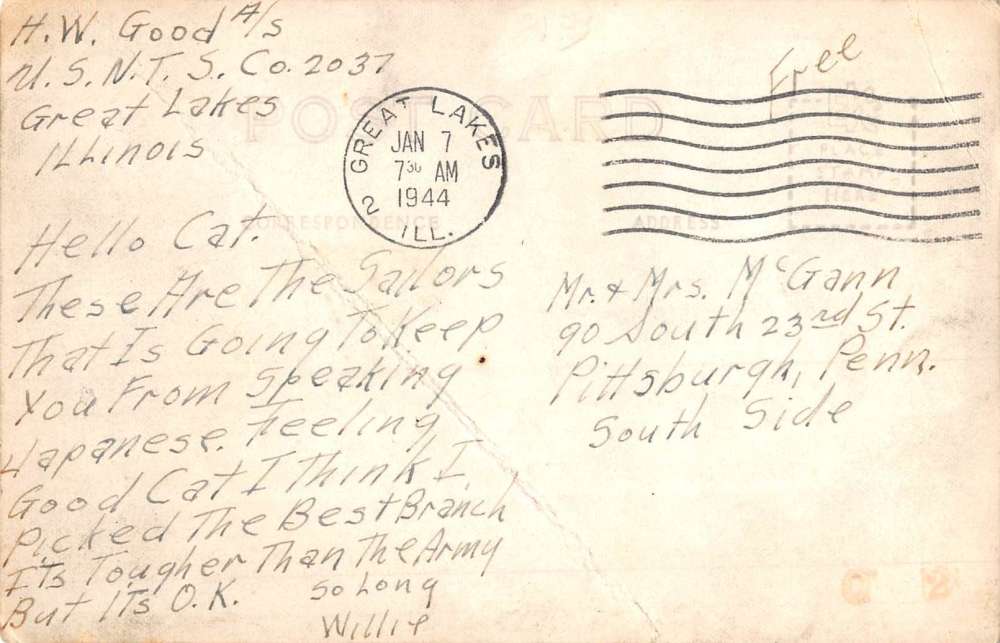 H.W. Good A/S
U.S.N.T.S. Co. 2037
Great Lakes
Illinois
Free
POST CARD
GREAT LAKES
JAN 7
7 30 AM
1944
2 ILL.
PLACE
STAMP
HERE
CORRESPONDENCE
ADDRESS
Hello Cat.
These Are The Sailors
That Is Going To Keep
You From Speaking
Japanese. Feeling
Good Cat I Think I
Picked The Best Branch
Its Tougher Than The Army
But Its O.K.
So Long
Willie
Mr. & Mrs. McGann
90 South 23rd St.
Pittsburgh, Penn.
South Side